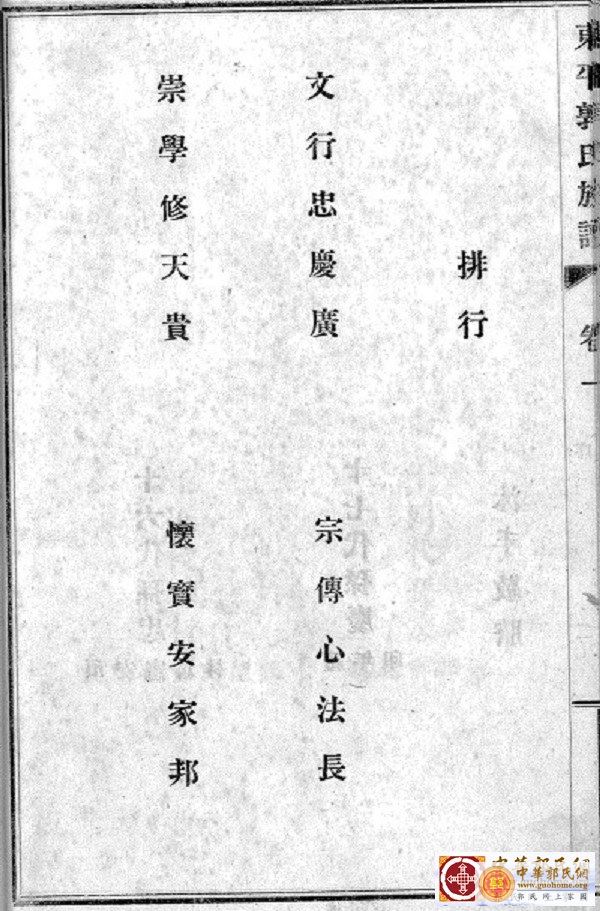 東平郭氏族譜 卷一
排行
文行忠慶廣 宗傳心法長
崇學修天貴 懷寶安家邦
中華郭氏網
www.guohome.org
郭氏网上家園